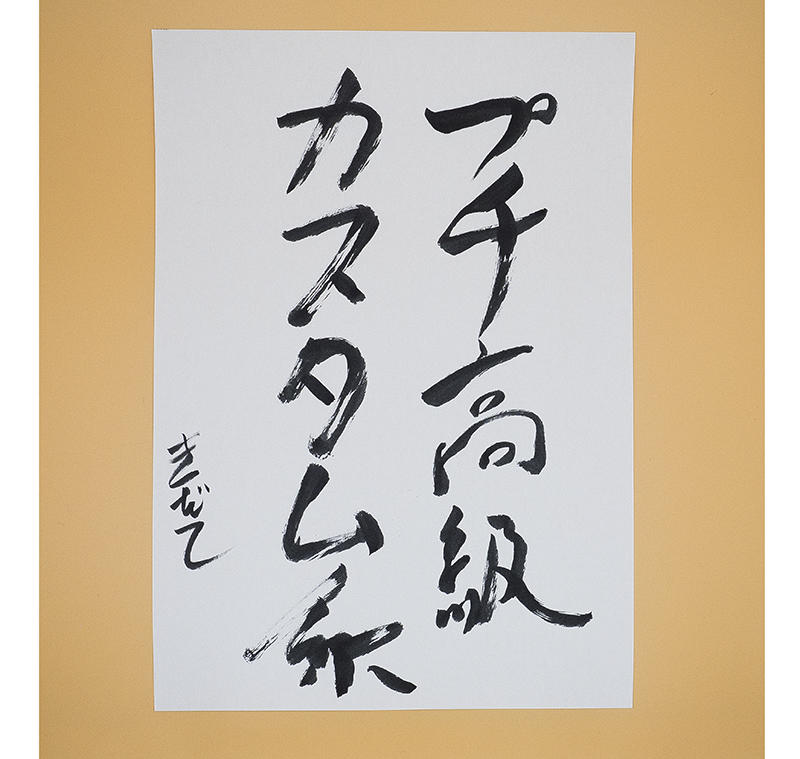 プチ高級
カスタム系
きだて